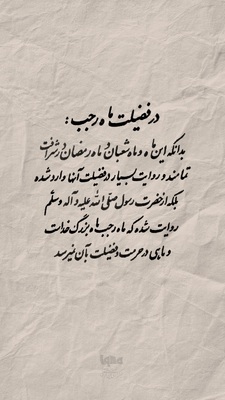 در فضیلت ماه رجب :
بدانکه این ماه و ماه شعبان و ماه رمضان در شرافت
تمامند و روایت بسیار در فضیلت آنها وارد شده
بلکه از حضرت رسول صلّی اللّه علیه و آله وسلّم
روایت شده که ماه رجب ماه بزرگ خداست
و ماهی در حرمت و فضیلت بآن نمیرسد